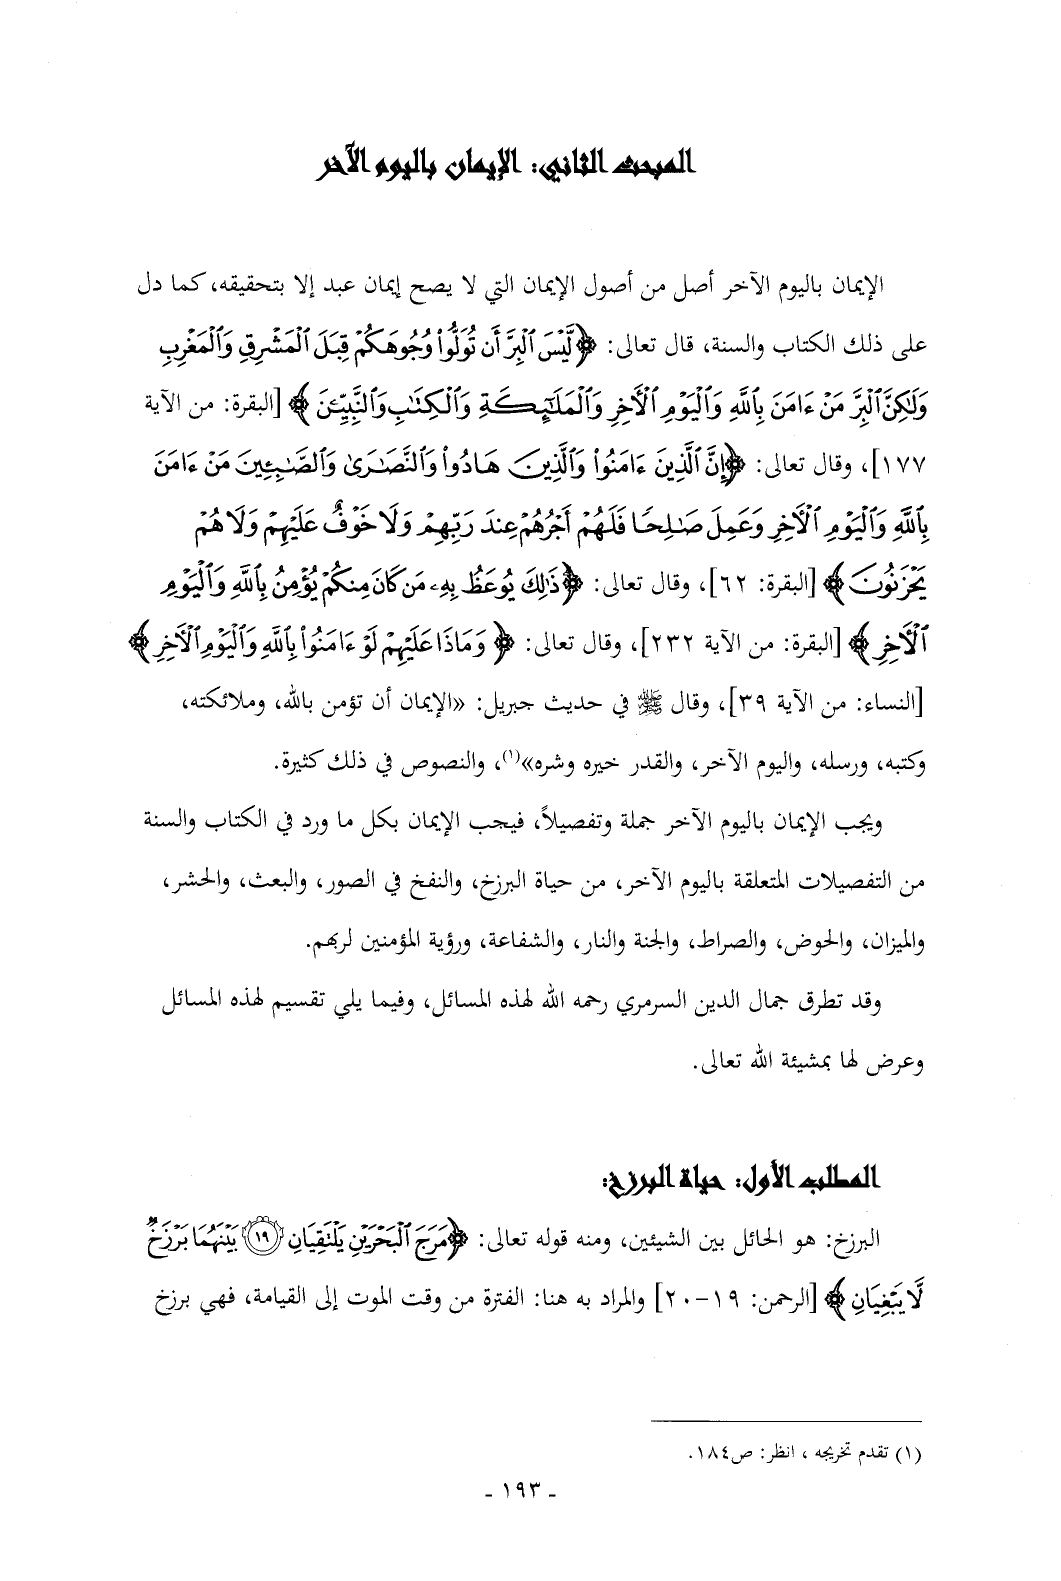 المبحث الثاني: الإيمان باليوم الآخر
الإيمان باليوم الآخر أصل من أصول الإيمان التي لا يصح إيمان عبد إلا بتحقيقه، كما دل
على ذلك الكتاب والسنة، قال تعالى: ﴿لَّيْسَ ٱلْبِرَّ أَن تُوَلُّوا۟ وُجُوهَكُمْ قِبَلَ ٱلْمَشْرِقِ وَٱلْمَغْرِبِ
وَلَٰكِنَّ ٱلْبِرَّ مَنْ ءَامَنَ بِٱللَّهِ وَٱلْيَوْمِ ٱلْأَخِرِ وَٱلْمَلَٰٓئِكَةِ وَٱلْكِتَٰبِ وَٱلنَّبِيِّـۧنَ﴾ [البقرة: من الآية
١٧٧]، وقال تعالى: ﴿إِنَّ ٱلَّذِينَ ءَامَنُوا۟ وَٱلَّذِينَ هَادُوا۟ وَٱلنَّصَٰرَىٰ وَٱلصَّٰبِـِٔينَ مَنْ ءَامَنَ
بِٱللَّهِ وَٱلْيَوْمِ ٱلْأَخِرِ وَعَمِلَ صَٰلِحًا فَلَهُمْ أَجْرُهُمْ عِندَ رَبِّهِمْ وَلَا خَوْفٌ عَلَيْهِمْ وَلَا هُمْ
يَحْزَنُونَ﴾ [البقرة: ٦٢]، وقال تعالى: ﴿ذَٰلِكَ يُوعَظُ بِهِۦ مَن كَانَ مِنكُمْ يُؤْمِنُ بِٱللَّهِ وَٱلْيَوْمِ
ٱلْأَخِرِ﴾ [البقرة: من الآية ٢٣٢]، وقال تعالى: ﴿وَمَاذَا عَلَيْهِمْ لَوْ ءَامَنُوا۟ بِٱللَّهِ وَٱلْيَوْمِ ٱلْأَخِرِ﴾
[النساء: من الآية ٣٩]، وقال ﷺ في حديث جبريل: «الإيمان أن تؤمن بالله، وملائكته،
وكتبه، ورسله، واليوم الآخر، والقدر خيره وشره»(١)، والنصوص في ذلك كثيرة.
ويجب الإيمان باليوم الآخر جملة وتفصيلاً، فيجب الإيمان بكل ما ورد في الكتاب والسنة
من التفصيلات المتعلقة باليوم الآخر، من حياة البرزخ، والنفخ في الصور، والبعث، والحشر،
والميزان، والحوض، والصراط، والجنة والنار، والشفاعة، ورؤية المؤمنين لربهم.
وقد تطرق جمال الدين السرمري رحمه الله لهذه المسائل، وفيما يلي تقسيم لهذه المسائل
وعرض لها بمشيئة الله تعالى.
المطلب الأول: حياة البرزخ:
البرزخ: هو الحائل بين الشيئين، ومنه قوله تعالى: ﴿مَرَجَ ٱلْبَحْرَيْنِ يَلْتَقِيَانِ ۝١٩ بَيْنَهُمَا بَرْزَخٌ
لَّا يَبْغِيَانِ﴾ [الرحمن: ١٩-٢٠] والمراد به هنا: الفترة من وقت الموت إلى القيامة، فهي برزخ
(١) تقدم تخريجه ، انظر: ص١٨٤.
- ١٩٣ -